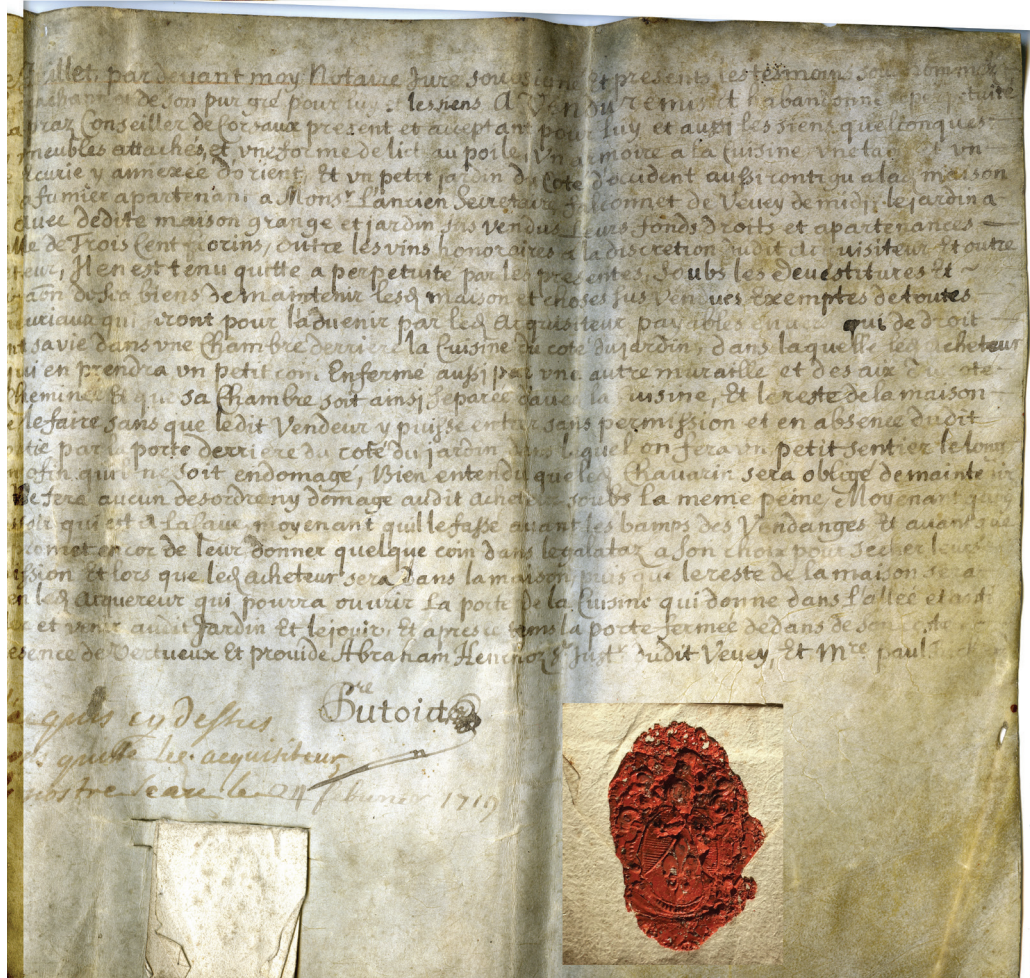 Juillet, par devant moy Notaire Juré soussigné Et presents les tesmoins sous nommez
de son pur gré pour luy et les siens A Vendu remis et habandonné a perpetuité
praz Conseiller de Corsaux present et acceptant pour luy et aussi les siens quelconques
meubles attachés, et vne forme de lict au poile, Vn armoire a la Cuisine vne table Et vn
Ecurie y annexée D'orient, Et vn petit jardin du Coté d'occident aussi contigu a lad maison
a fumier apartenant a Monsr L'ancien Secretaire falconnet de Vevey de midi, le jardin a
avec dedite maison grange et jardin sus vendus Leurs fonds droits et apartenances
de Trois Cent florins, outre les vins honoraires a la discretion dudit acquisiteur Et outre
Il en est tenu quitte a perpetuité par les presentes, Soubs les devestitures Et
on de ses biens De maintenir lesd maison et choses sus Vendues Exemptes de toutes
qui seront pour l'advenir par led Acquisiteur payables envers qui de droit
sa vie dans vne Chambre derriere la Cuisine du coté du jardin, dans laquelle led acheteur
qui en prendra vn petit coin Enfermé aussi par vne autre muraille et des aix du coté
Cheminée Et que sa Chambre soit ainsi Separée d'avec la Cuisine, Et le reste de la maison
le faire sans que ledit Vendeur y puisse entrer sans permission et en absence dudit
par la porte derriere du coté du jardin dans lequel on fera vn petit sentier le long
afin qu'il ne soit endomagé, Bien entendu que led Chavarin sera obligé de maintenir
ne fera aucun desordre ny domage audit acheteur soubs la meme peine, Moyenant quoy
qui est a la cave moyenant quil le fasse avant les bamps des Vendanges Et avant que
promet encor de leur donner quelque coin dans le galataz a son choix pour secher leurs
Et lors que led acheteur sera dans la maison, puis que le reste de la maison sera
led Acquereur qui pourra ouvrir La porte de la Cuisine qui donne dans l'allée et
et venir audit Jardin Et le jouir, Et apres ce tems la porte fermée dedans de son coté
presence de Vertueux Et provide Abraham Just dudit Vevey, Et Mre paul
Butoida
acquis cy dessus
quitte led acquisiteur
nostre le 24 febvrier 1719